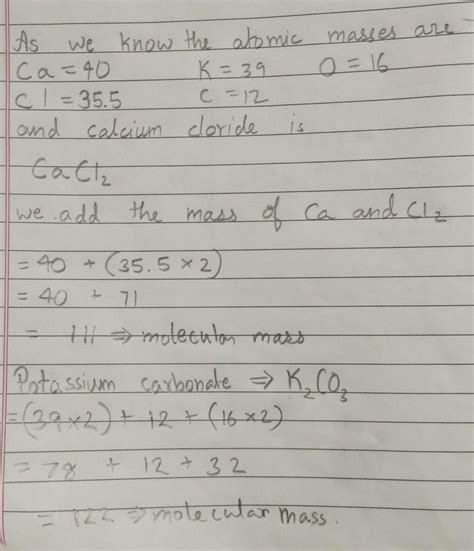 As we know the atomic masses are
Ca = 40 K = 39 O = 16
Cl = 35.5 C = 12
and calcium cloride is
CaCl₂
we add the mass of Ca and Cl₂
= 40 + (35.5 × 2)
= 40 + 71
= 111 ⇒ molecular mass
Potassium carbonate ⇒ K₂CO₃
= (39×2) + 12 + (16×2)
= 78 + 12 + 32
= 122 ⇒ molecular mass.